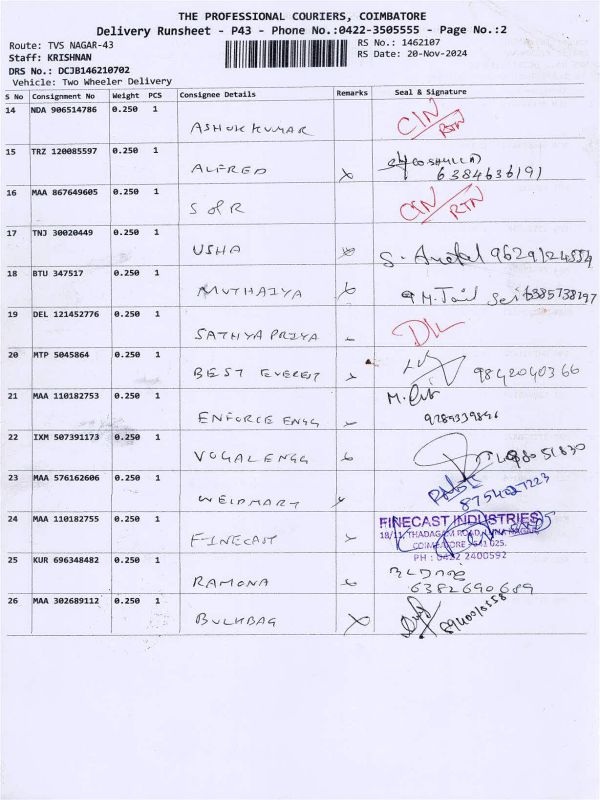 THE PROFESSIONAL COURIERS, COIMBATORE
Delivery Runsheet - P43 - Phone No.:0422-3505555 - Page No.:2
Route: TVS NAGAR-43
RS No.: 1462107
Staff: KRISHNAN
RS Date: 20-Nov-2024
DRS No.: DCJB146210702
Vehicle: Two Wheeler Delivery
S No Consignment No Weight PCS Consignee Details Remarks Seal & Signature
14 NDA 906514786 0.250 1
ASHOK KUMAR CIN/RTN
15 TRZ 120085597 0.250 1
ALFRED 6384636191
16 MAA 867649605 0.250 1
S & R CIN/RTN
17 TNJ 30020449 0.250 1
USHA 9629124554
18 BTU 347517 0.250 1
MUTHAIYA 6385738297
19 DEL 121452776 0.250 1
SATHYA PRIYA DL
20 MTP 5045864 0.250 1
BEST EVEREST 9842040366
21 MAA 110182753 0.250 1
ENFORCE ENGG
22 IXM 507391173 0.250 1
VOGAL ENGG
23 MAA 576162606 0.250 1
WELDMART 8754027223
24 MAA 110182755 0.250 1
FINECAST
FINECAST INDUSTRIES
18/11, THADAGAM ROAD,
COIMBATORE - 641 025.
PH : 0422 2400592
25 KUR 696348482 0.250 1
RAMONA 6382690689
26 MAA 302689112 0.250 1
BULKBAG